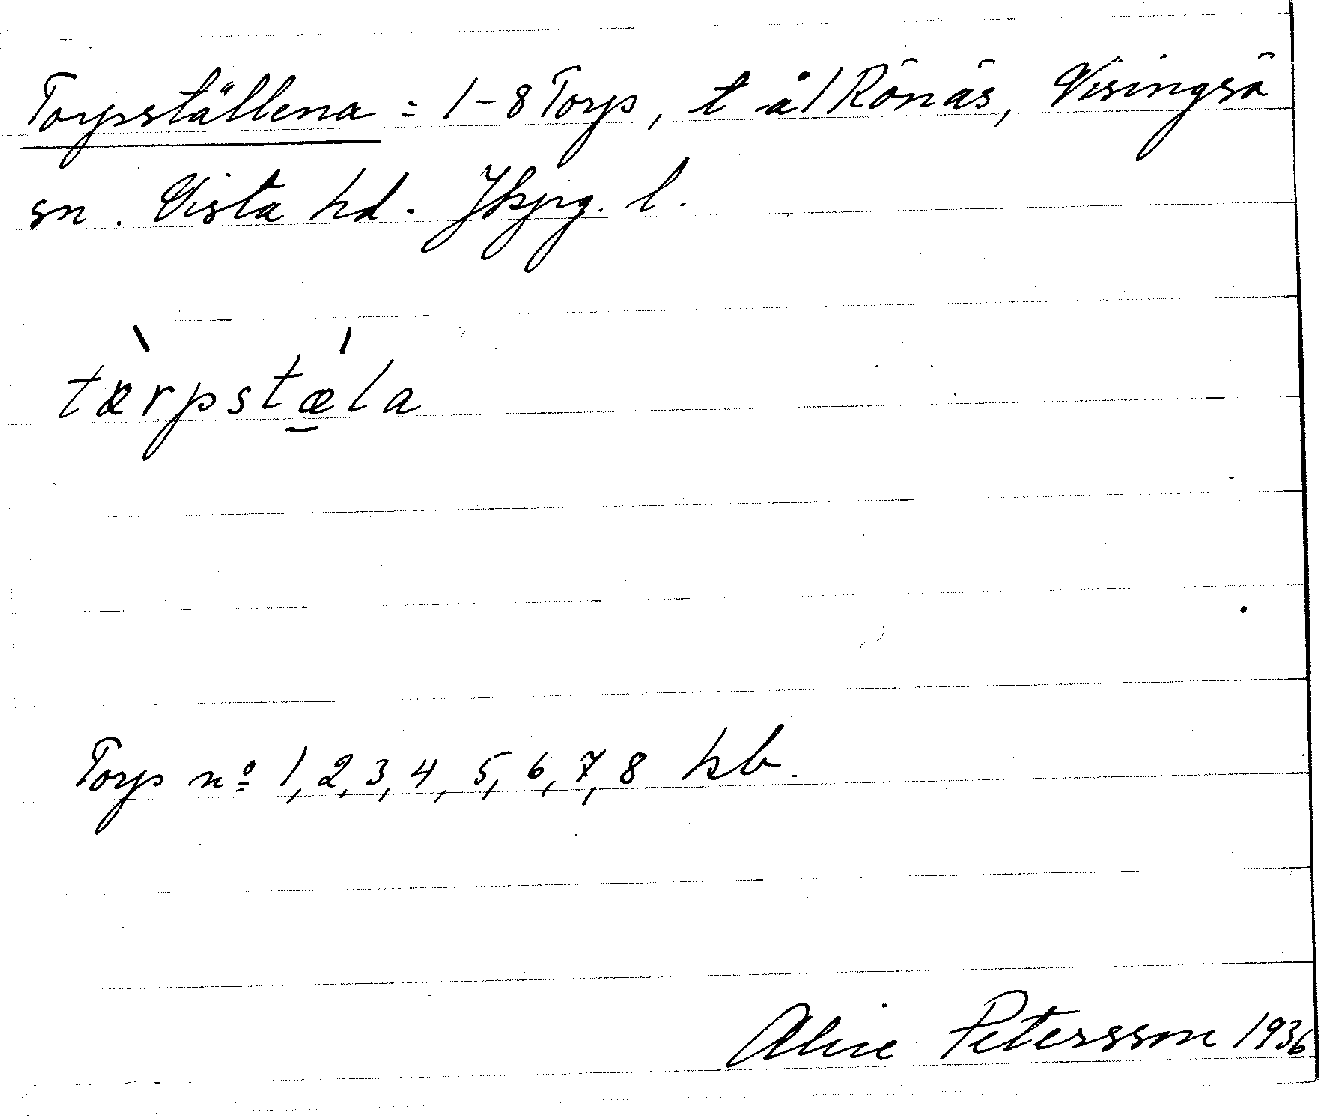 Torpställena = 1-8 Torp, t å/ Rönäs, Visingsö
sn. Vista hd. Jkpg. l.
tærpstæla
Torp nº 1, 2, 3, 4, 5, 6, 7, 8 kb.
Alice Petersson 1936